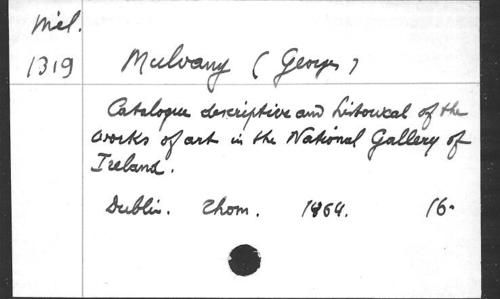 Mél.
1319 Mulvany (George)
Catalogue descriptive and historical of the
works of art in the National Gallery of
Ireland.
Dublin. Thom. 1864. 16°